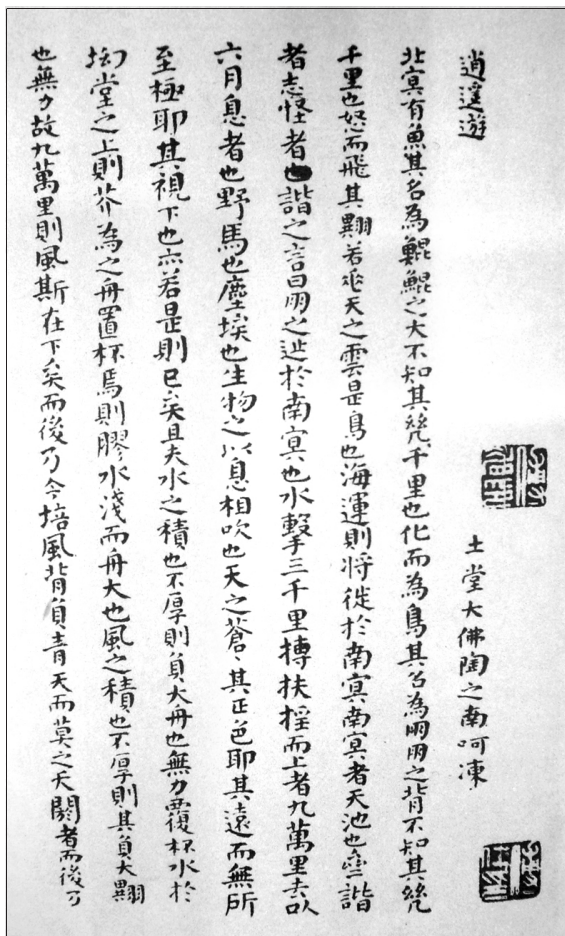 逍遙遊
土堂大佛陶之南呵凍
北冥有魚其名為鯤鯤之大不知其幾千里也化而為鳥其名為朋朋之背不知其幾
千里也怒而飛其翼若垂天之雲是鳥也海運則將徙於南冥南冥者天池也齊諧
者志怪者也諧之言曰朋之徙於南冥也水擊三千里摶扶搖而上者九萬里去以
六月息者也野馬也塵埃也生物之以息相吹也天之蒼、其正色耶其遠而無所
至極耶其視下也亦若是則已矣且夫水之積也不厚則負大舟也無力覆杯水於
坳堂之上則芥為之舟置杯焉則膠水淺而舟大也風之積也不厚則其負大翼
也無力故九萬里則風斯在下矣而後乃今培風背負青天而莫之夭閼者而後乃